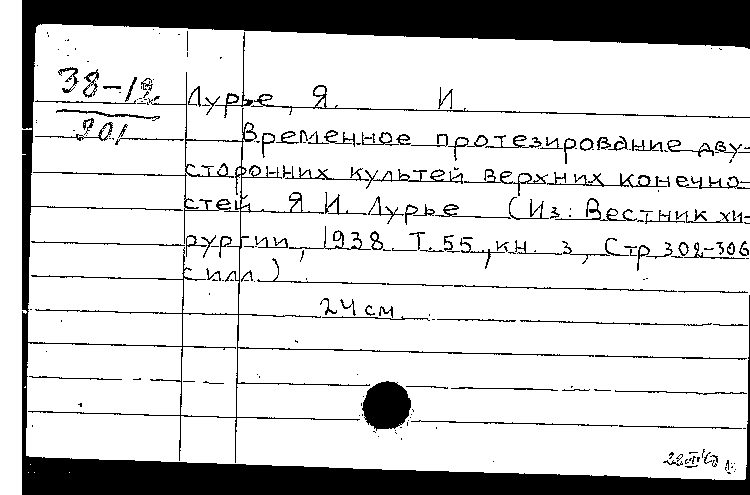 38-12
201
Лурье, Я. И.
Временное протезирование дву-
сторонних культей верхних конечно-
стей. Я. И. Лурье (Из: Вестник хи-
рургии, 1938. Т. 55, кн. 3, Стр. 302-306
с илл.)
24 см.